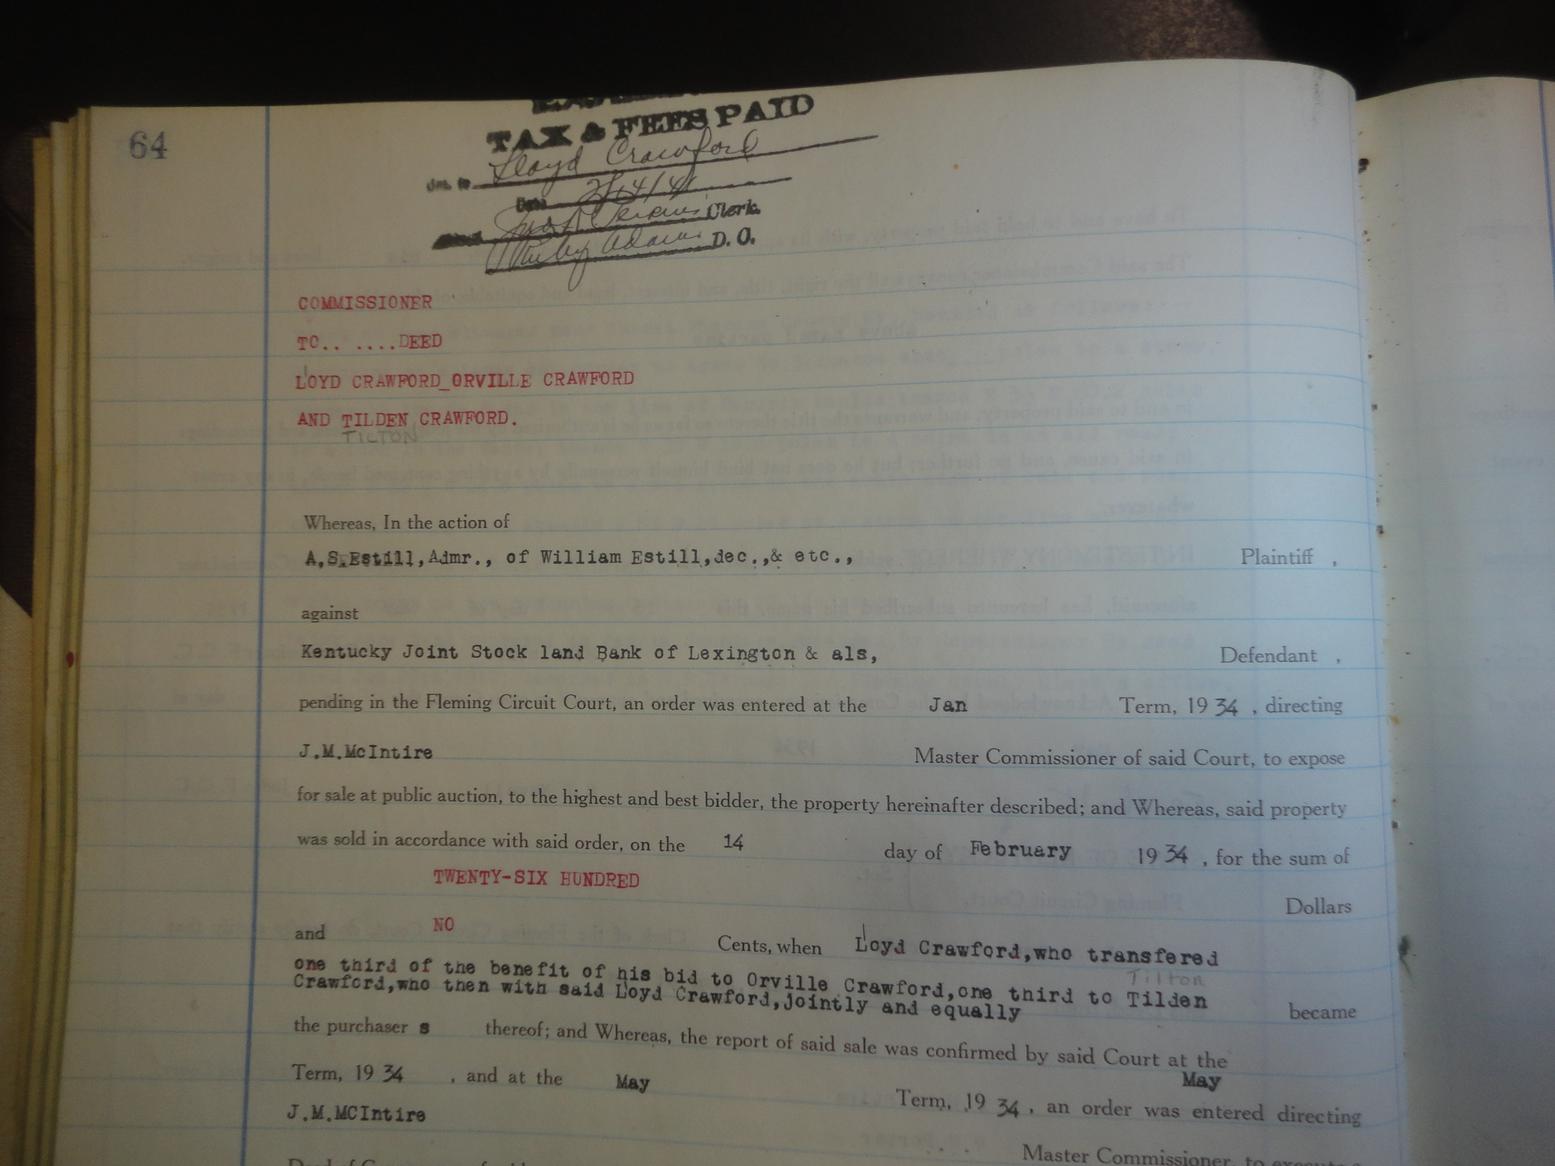 64
TAX & FEES PAID
Lloyd Crawford
Date 2/14/41
Clerk
Adams D. C.
COMMISSIONER
TO.. ....DEED
LOYD CRAWFORD_ORVILLE CRAWFORD
AND TILDEN CRAWFORD.
TILTON
Whereas, In the action of
A,S.Estill,Admr., of William Estill,dec.,& etc., Plaintiff ,
against
Kentucky Joint Stock land Bank of Lexington & als, Defendant ,
pending in the Fleming Circuit Court, an order was entered at the Jan Term, 19 34 , directing
J.M.McIntire Master Commissioner of said Court, to expose
for sale at public auction, to the highest and best bidder, the property hereinafter described; and Whereas, said property
was sold in accordance with said order, on the 14 day of February 19 34 , for the sum of
TWENTY-SIX HUNDRED Dollars
and NO Cents, when Loyd Crawford,who transfered
one third of the benefit of his bid to Orville Crawford,one third to Tilden
Tilton
Crawford,who then with said Loyd Crawford,jointly and equally became
the purchaser s thereof; and Whereas, the report of said sale was confirmed by said Court at the
May
Term, 19 34 , and at the May Term, 19 34 , an order was entered directing
J.M.MCIntire
Master Commissioner, to